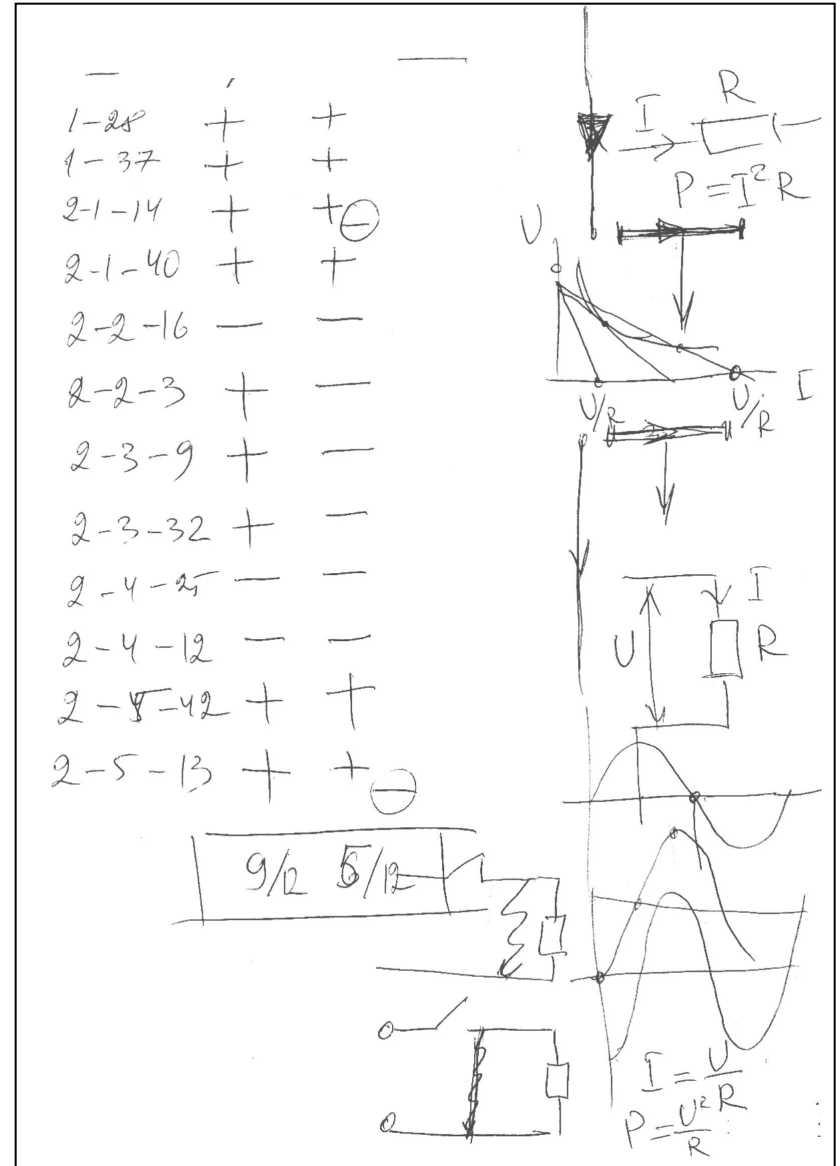 1-28 + +
1-37 + +
2-1-14 + + ⊖
2-1-40 + +
2-2-16 — —
2-2-3 + —
2-3-9 + —
2-3-32 + —
2-4-25 — —
2-4-12 — —
2-5-42 + +
2-5-13 + + ⊖
9/12 6/12
I R
P = I² R
U
I
U/R U/R
I
U R
I = U/R
P = U²/R